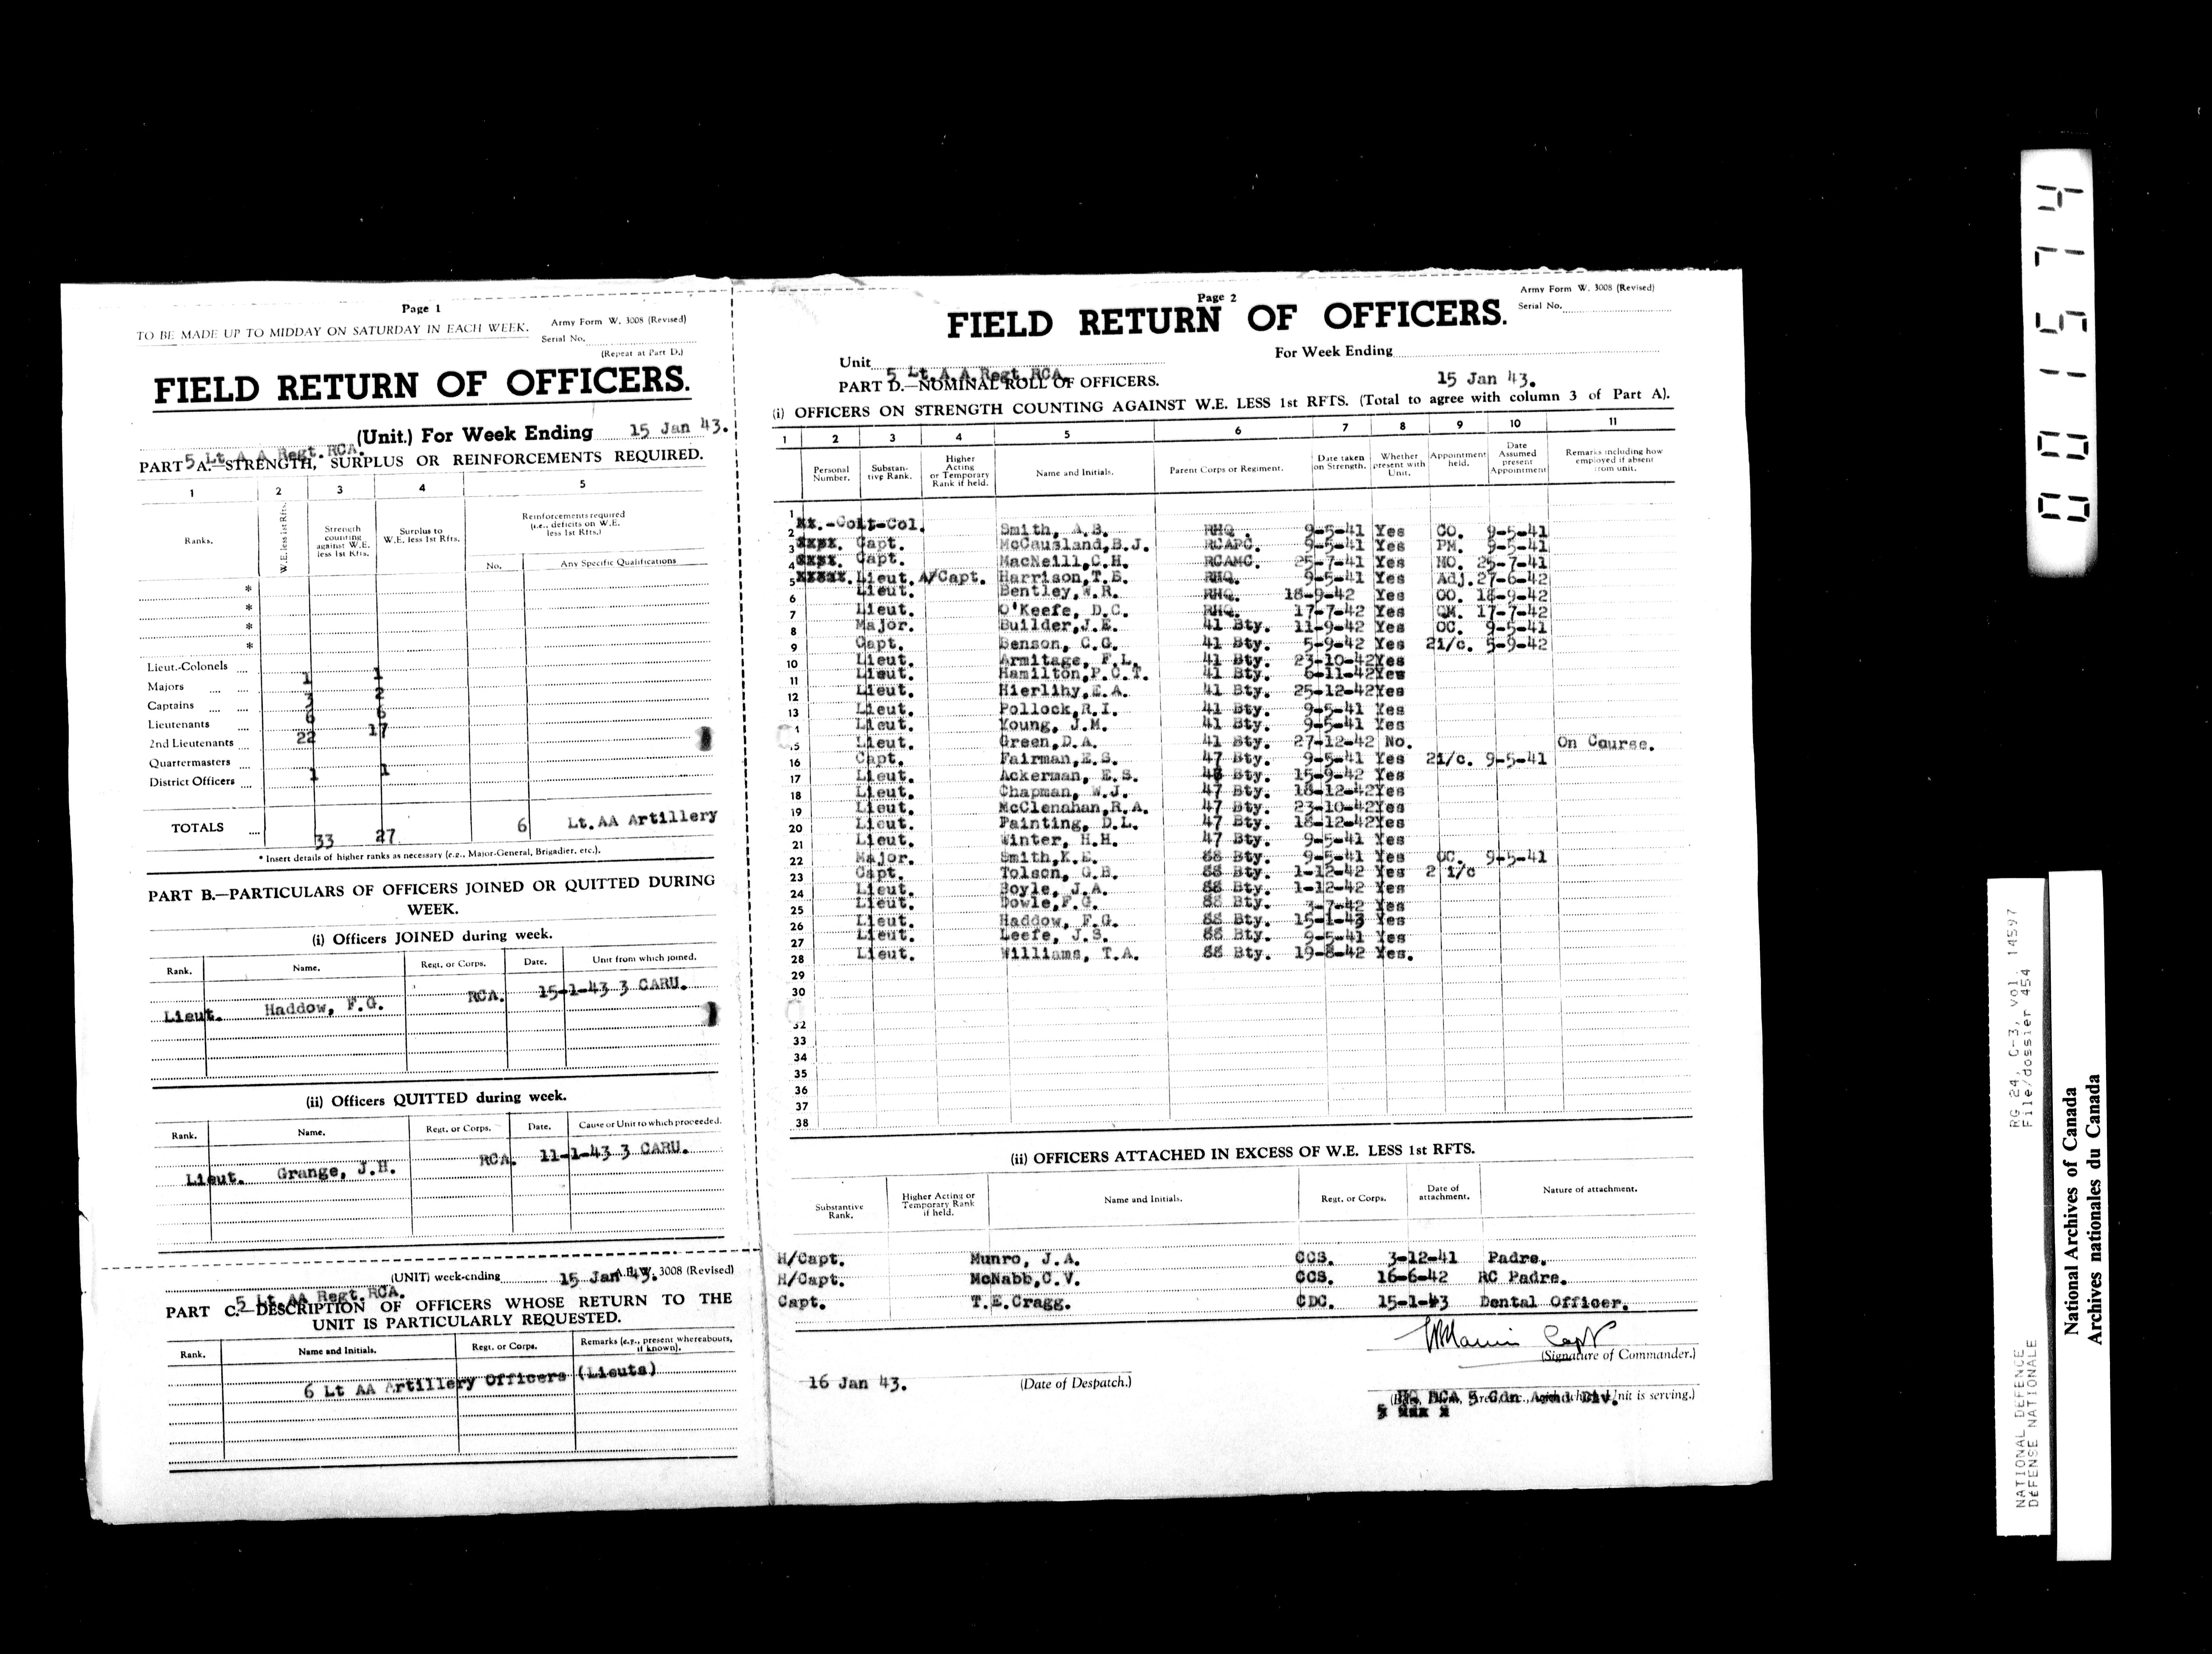 Page 1
TO BE MADE UP TO MIDDAY ON SATURDAY IN EACH WEEK.
Army Form W. 3008 (Revised)
Serial No.
(Repeat at Part D.)
FIELD RETURN OF OFFICERS.
(Unit.) For Week Ending 15 Jan 43.
5 Lt A A Regt. RCA.
PART A.—STRENGTH, SURPLUS OR REINFORCEMENTS REQUIRED.
1 2 3 4 5
Ranks. W.E. less 1st Rfts. Strength counting against W.E. less 1st Rfts. Surplus to W.E. less 1st Rfts. Reinforcements required (i.e., deficits on W.E. less 1st Rfts.)
No. Any Specific Qualifications
*
*
*
*
Lieut.-Colonels 1 1
Majors 3 2
Captains 6 6
Lieutenants 22 17
2nd Lieutenants
Quartermasters 1 1
District Officers
TOTALS 33 27 6 Lt.AA Artillery
* Insert details of higher ranks as necessary (e.g., Major-General, Brigadier, etc.).
PART B.—PARTICULARS OF OFFICERS JOINED OR QUITTED DURING
WEEK.
(i) Officers JOINED during week.
Rank. Name. Regt. or Corps. Date. Unit from which joined.
Lieut. Haddow, F.G. RCA. 15-1-43 3 CARU.
(ii) Officers QUITTED during week.
Rank. Name. Regt. or Corps. Date. Cause or Unit to which proceeded.
Lieut. Grange, J.H. RCA. 11-1-43 3 CARU.
(UNIT) week-ending 15 Jan 43. A.F.W. 3008 (Revised)
5 Lt AA Regt. RCA.
PART C.—DESCRIPTION OF OFFICERS WHOSE RETURN TO THE
UNIT IS PARTICULARLY REQUESTED.
Rank. Name and Initials. Regt. or Corps. Remarks (e.g., present whereabouts, if known).
6 Lt AA Artillery Officers (Lieuts)
Page 2
Army Form W. 3008 (Revised)
Serial No.
FIELD RETURN OF OFFICERS.
Unit 5 Lt A A Regt RCA.
For Week Ending 15 Jan 43.
PART D.—NOMINAL ROLL OF OFFICERS.
(i) OFFICERS ON STRENGTH COUNTING AGAINST W.E. LESS 1st RFTS. (Total to agree with column 3 of Part A).
1 2 3 4 5 6 7 8 9 10 11
Personal Number. Substantive Rank. Higher Acting or Temporary Rank if held. Name and Initials. Parent Corps or Regiment. Date taken on Strength. Whether present with Unit. Appointment held. Date Assumed present Appointment Remarks including how employed if absent from unit.
1
2 Lt-Col. Smith, A.B. RHQ. 9-5-41 Yes CO. 9-5-41
3 Capt. McCausland,B.J. RCAPC. 9-5-41 Yes PM. 9-5-41
4 Capt. MacNeill,C.H. RCAMC. 25-7-41 Yes MO. 25-7-41
5 Lieut. A/Capt. Harrison,T.E. RHQ. 9-5-41 Yes Adj. 27-6-42
Lieut. Bentley,W.R. RHQ. 18-9-42 Yes OO. 18-9-42
6 Lieut. O'Keefe, D.C. RHQ. 17-7-42 Yes QM. 17-7-42
7 Major. Builder,J.E. 41 Bty. 11-9-42 Yes OC. 9-5-41
8 Capt. Benson, C.G. 41 Bty. 5-9-42 Yes 2i/c. 5-9-42
9 Lieut. Armitage, F.L. 41 Bty. 23-10-42 Yes
10 Lieut. Hamilton,P.C.T. 41 Bty. 6-11-42 Yes
11 Lieut. Hierlihy,E.A. 41 Bty. 25-12-42 Yes
12 Lieut. Pollock,R.I. 41 Bty. 9-5-41 Yes
13 Lieut. Young, J.M. 41 Bty. 9-5-41 Yes
Lieut. Green,D.A. 41 Bty. 27-12-42 No. On Course.
Capt. Fairman,E.S. 47 Bty. 9-5-41 Yes 2i/c. 9-5-41
16 Lieut. Ackerman, E.S. Bty. 15-9-42 Yes
17 Lieut. Chapman, W.J. 47 Bty. 18-12-42 Yes
18 Lieut. McClenahan,R.A. 47 Bty. 23-10-42 Yes
19 Lieut. Painting, D.L. 47 Bty. 18-12-42 Yes
20 Lieut. Winter, H.H. 47 Bty. 9-5-41 Yes
21 Major. Smith,K.E. 88 Bty. 9-5-41 Yes OC. 9-5-41
22 Capt. Tolson, G.B. 88 Bty. 1-12-42 Yes 2 i/c
23 Lieut. Boyle, J.A. 88 Bty. 1-12-42 Yes
24 Lieut. Dowle,F.G. 88 Bty. 3-7-42 Yes
25 Lieut. Haddow, F.G. 88 Bty. 15-1-43 Yes
26 Lieut. Leefe, J.S. 88 Bty. 9-5-41 Yes
27 Lieut. Williams, T.A. 88 Bty. 19-8-42 Yes.
28
29
30
32
33
34
35
36
37
38
(ii) OFFICERS ATTACHED IN EXCESS OF W.E. LESS 1st RFTS.
Substantive Rank. Higher Acting or Temporary Rank if held. Name and Initials. Regt. or Corps. Date of attachment. Nature of attachment.
H/Capt. Munro, J.A. CCS. 3-12-41 Padre.
H/Capt. McNabb,C.V. CCS. 16-6-42 RC Padre.
Capt. T.E.Cragg. CDC. 15-1-43 Dental Officer.
Capt
(Signature of Commander.)
16 Jan 43. (Date of Despatch.)
HQ RCA 5 Cdn Armd Div.
Unit is serving.)
001574
RG 24, C-3, vol. 14597
File/dossier 454
NATIONAL DEFENCE
DEFENSE NATIONALE
National Archives of Canada
Archives nationales du Canada